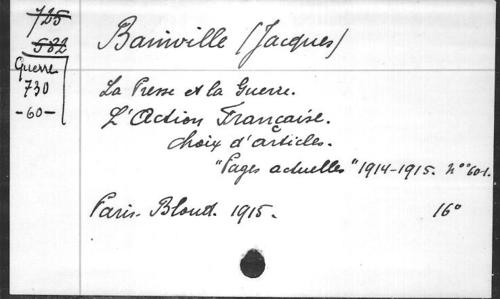 725
582
Guerre
730
-60-
Bainville (Jacques)
La Presse et la Guerre.
L'Action Française.
choix d'articles.
"Pages actuelles" 1914-1915. Nos 60-1.
Paris. Bloud. 1915. 16°